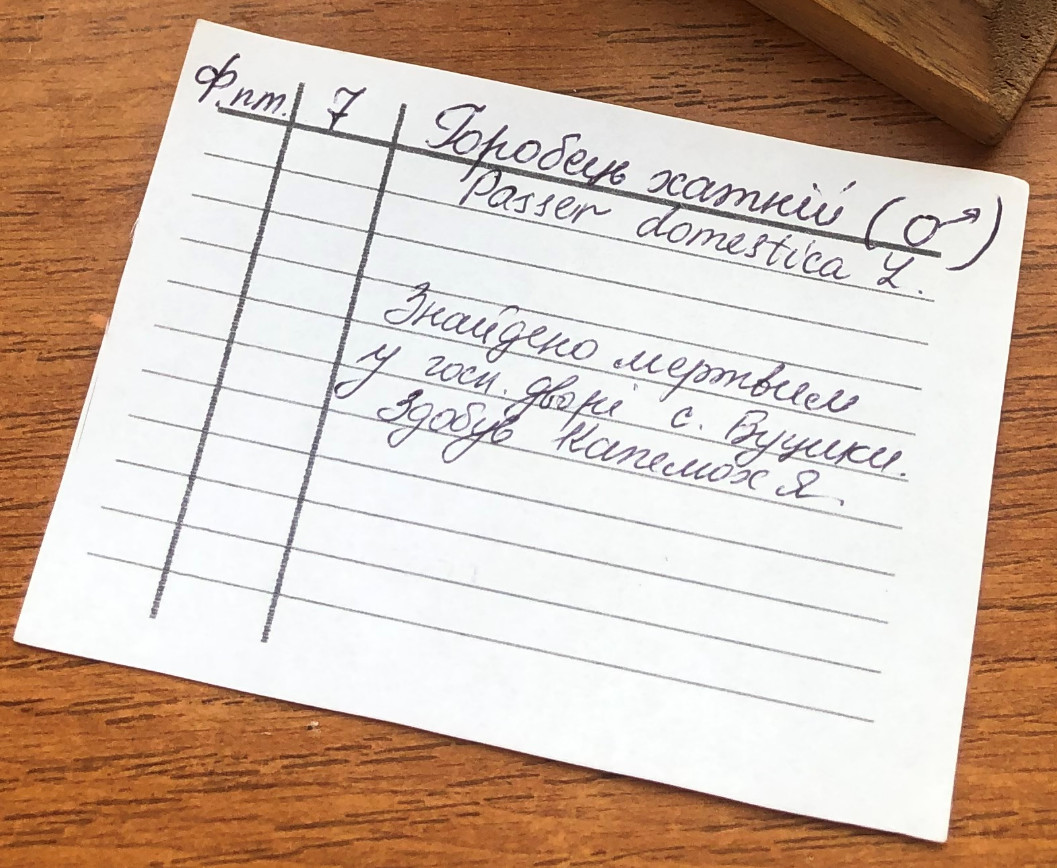 Ф.пт. 7 Горобець хатній (♂)
Passer domestica L.
Знайдено мертвим
у госп. дворі с. Вушки.
Здобув Капемох Я.